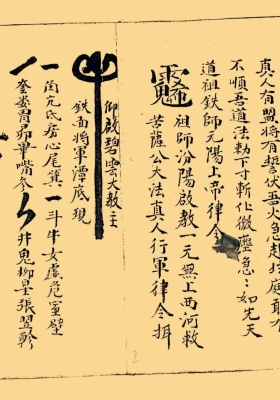 真人有盟將有誓伏吾火急赴庭敢
不順吾道法勅下寸斬化微塵急〻如先天
道祖鉄師元陽上帝律令
祖師汾陽啟教一元無上西河救
苦薩公大法真人行軍律令揖
仰啟碧雲大教主
鉄面將軍潭底現
一角亢氐房心尾箕 一斗牛女虛危室壁
奎婁胃昴畢嘴參 井鬼柳星張翌軫
2